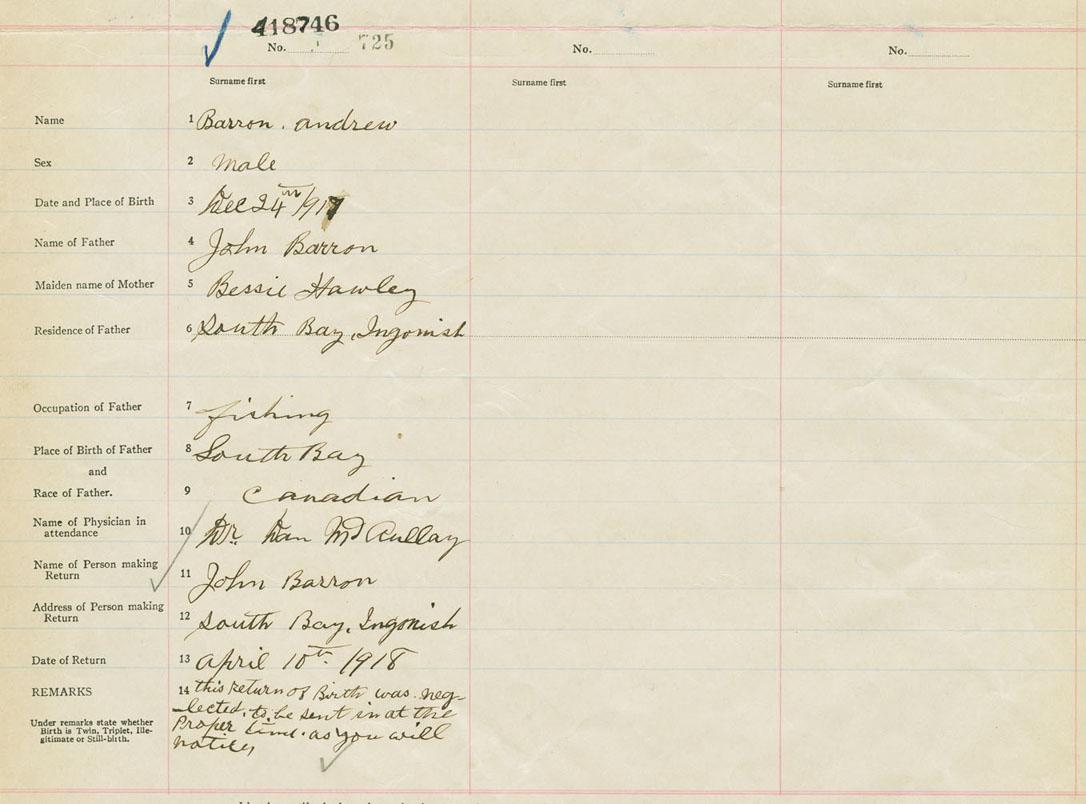 418746
No. 725 No. No.
Surname first Surname first Surname first
Name 1 Barron. Andrew
Sex 2 Male
Date and Place of Birth 3 Dec 24th/1917
Name of Father 4 John Barron
Maiden name of Mother 5 Bessie Hawley
Residence of Father 6 South Bay, Ingonish
Occupation of Father 7 fishing
Place of Birth of Father 8 South Bay
and
Race of Father. 9 Canadian
Name of Physician in
attendance 10 Dr. Dan
Name of Person making
Return 11 John Barron
Address of Person making
Return 12 South Bay, Ingonish
Date of Return 13 April 10th. 1918
REMARKS 14 this return of Birth was neg-
lected, to be sent in at the
Under remarks state whether Proper time. as you will
Birth is Twin, Triplet, Ille- notice,
gitimate or Still-birth.